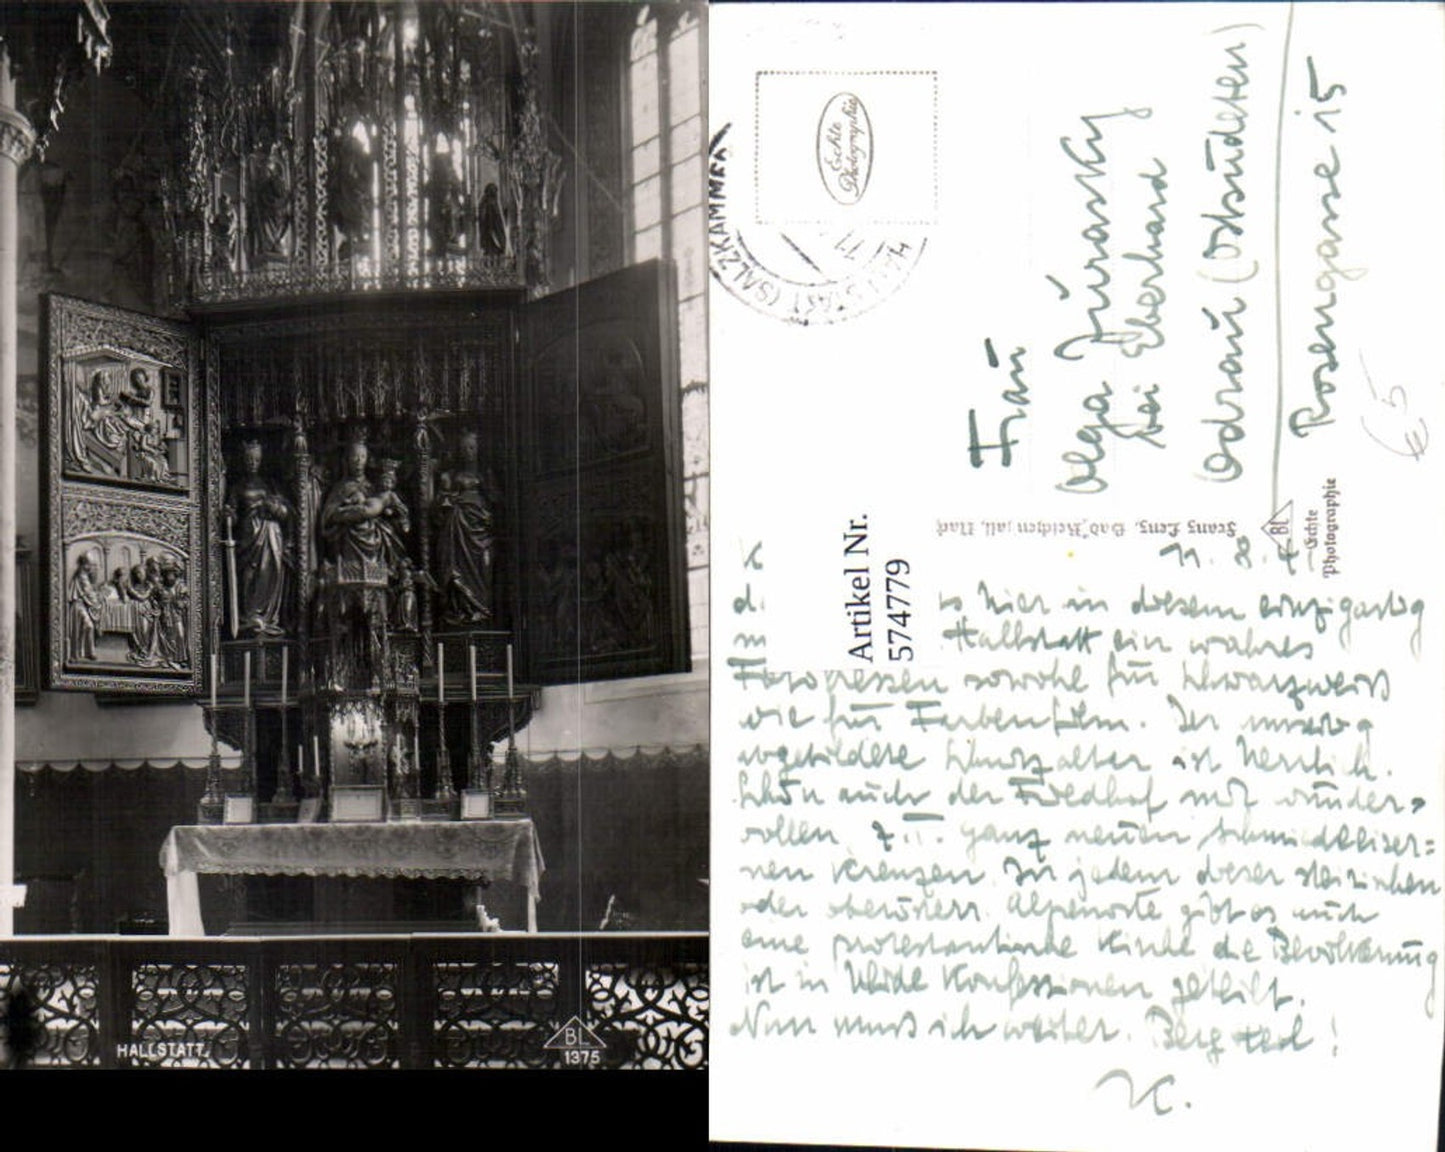 HALLSTATT.
BL
1375
Echte
Photographie
HALLSTATT (SALZKAMMER
Frau
Olga Jurasky
bei Eberhard
Odrau (Ostsudeten)
Rosengasse 15
€ 5
Artikel Nr.
574779
Franz Lenz, Bad Reichenhall, Nachf
BL
Echte
Photographie
11. 8. 4
hier in diesem einzigartig
Hallstatt ein wahres
Fotofressen sowohl für Schwarzweiß
wie für Farbenfilm. Der umseitig
abgebildete Schnitzaltar ist herrlich.
Schön auch der Friedhof mit wunder=
vollen, z.T. ganz neuen schmiedeeiser=
nen Kreuzen. In jedem dieser steirischen
oder oberösterr. Alpenorte gibt es auch
eine protestantische Kirche die Bevölkerung
ist in beide Konfessionen geteilt.
Nun muß ich weiter. Berg Heil!
K.